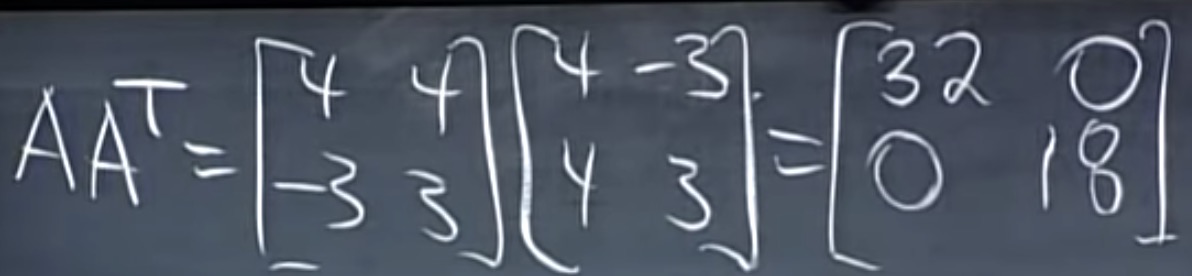 AAᵀ = [4 4; -3 3] [4 -3; 4 3] = [32 0; 0 18]